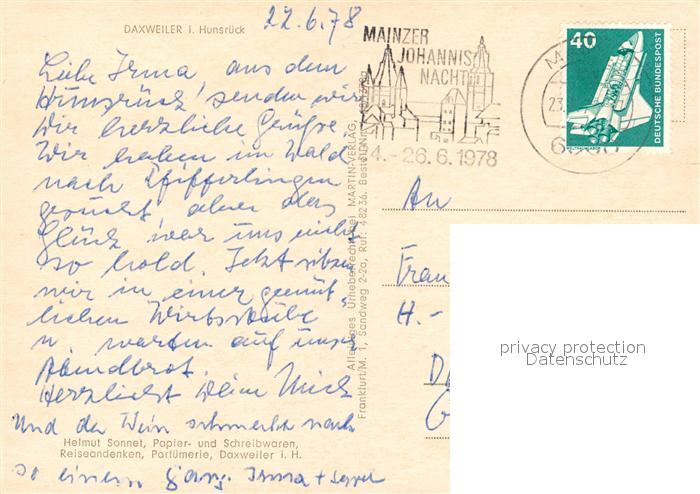 DAXWEILER i. Hunsrück
22.6.78
Liebe Irma aus dem
Hunsrück senden wir
Dir herzliche Grüße
Wir haben im Wald
nach Pfifferlingen
gesucht, aber das
Glück war uns nicht
so hold. Jetzt sitzen
wir in einer gemüt-
lichen Wirtsstube
u. warten auf unser
Abendbrot.
Herzlichst Deine
Und der Wein schmeckt nach
so einem Irma +
Helmut Sonnet, Papier- und Schreibwaren,
Reiseandenken, Parfümerie, Daxweiler i. H.
Alleiniges Urheberrecht bei MARTIN-VERLAG,
Frankfurt/M. 1, Sandweg 2-2a, Ruf: 48236, Bestell
MAINZER
JOHANNIS
NACHT
24.-26.6.1978
40
DEUTSCHE BUNDESPOST
WELTRAUMLABOR
M
23.
6500
An
Frau
H.-
D
G
privacy protection
Datenschutz